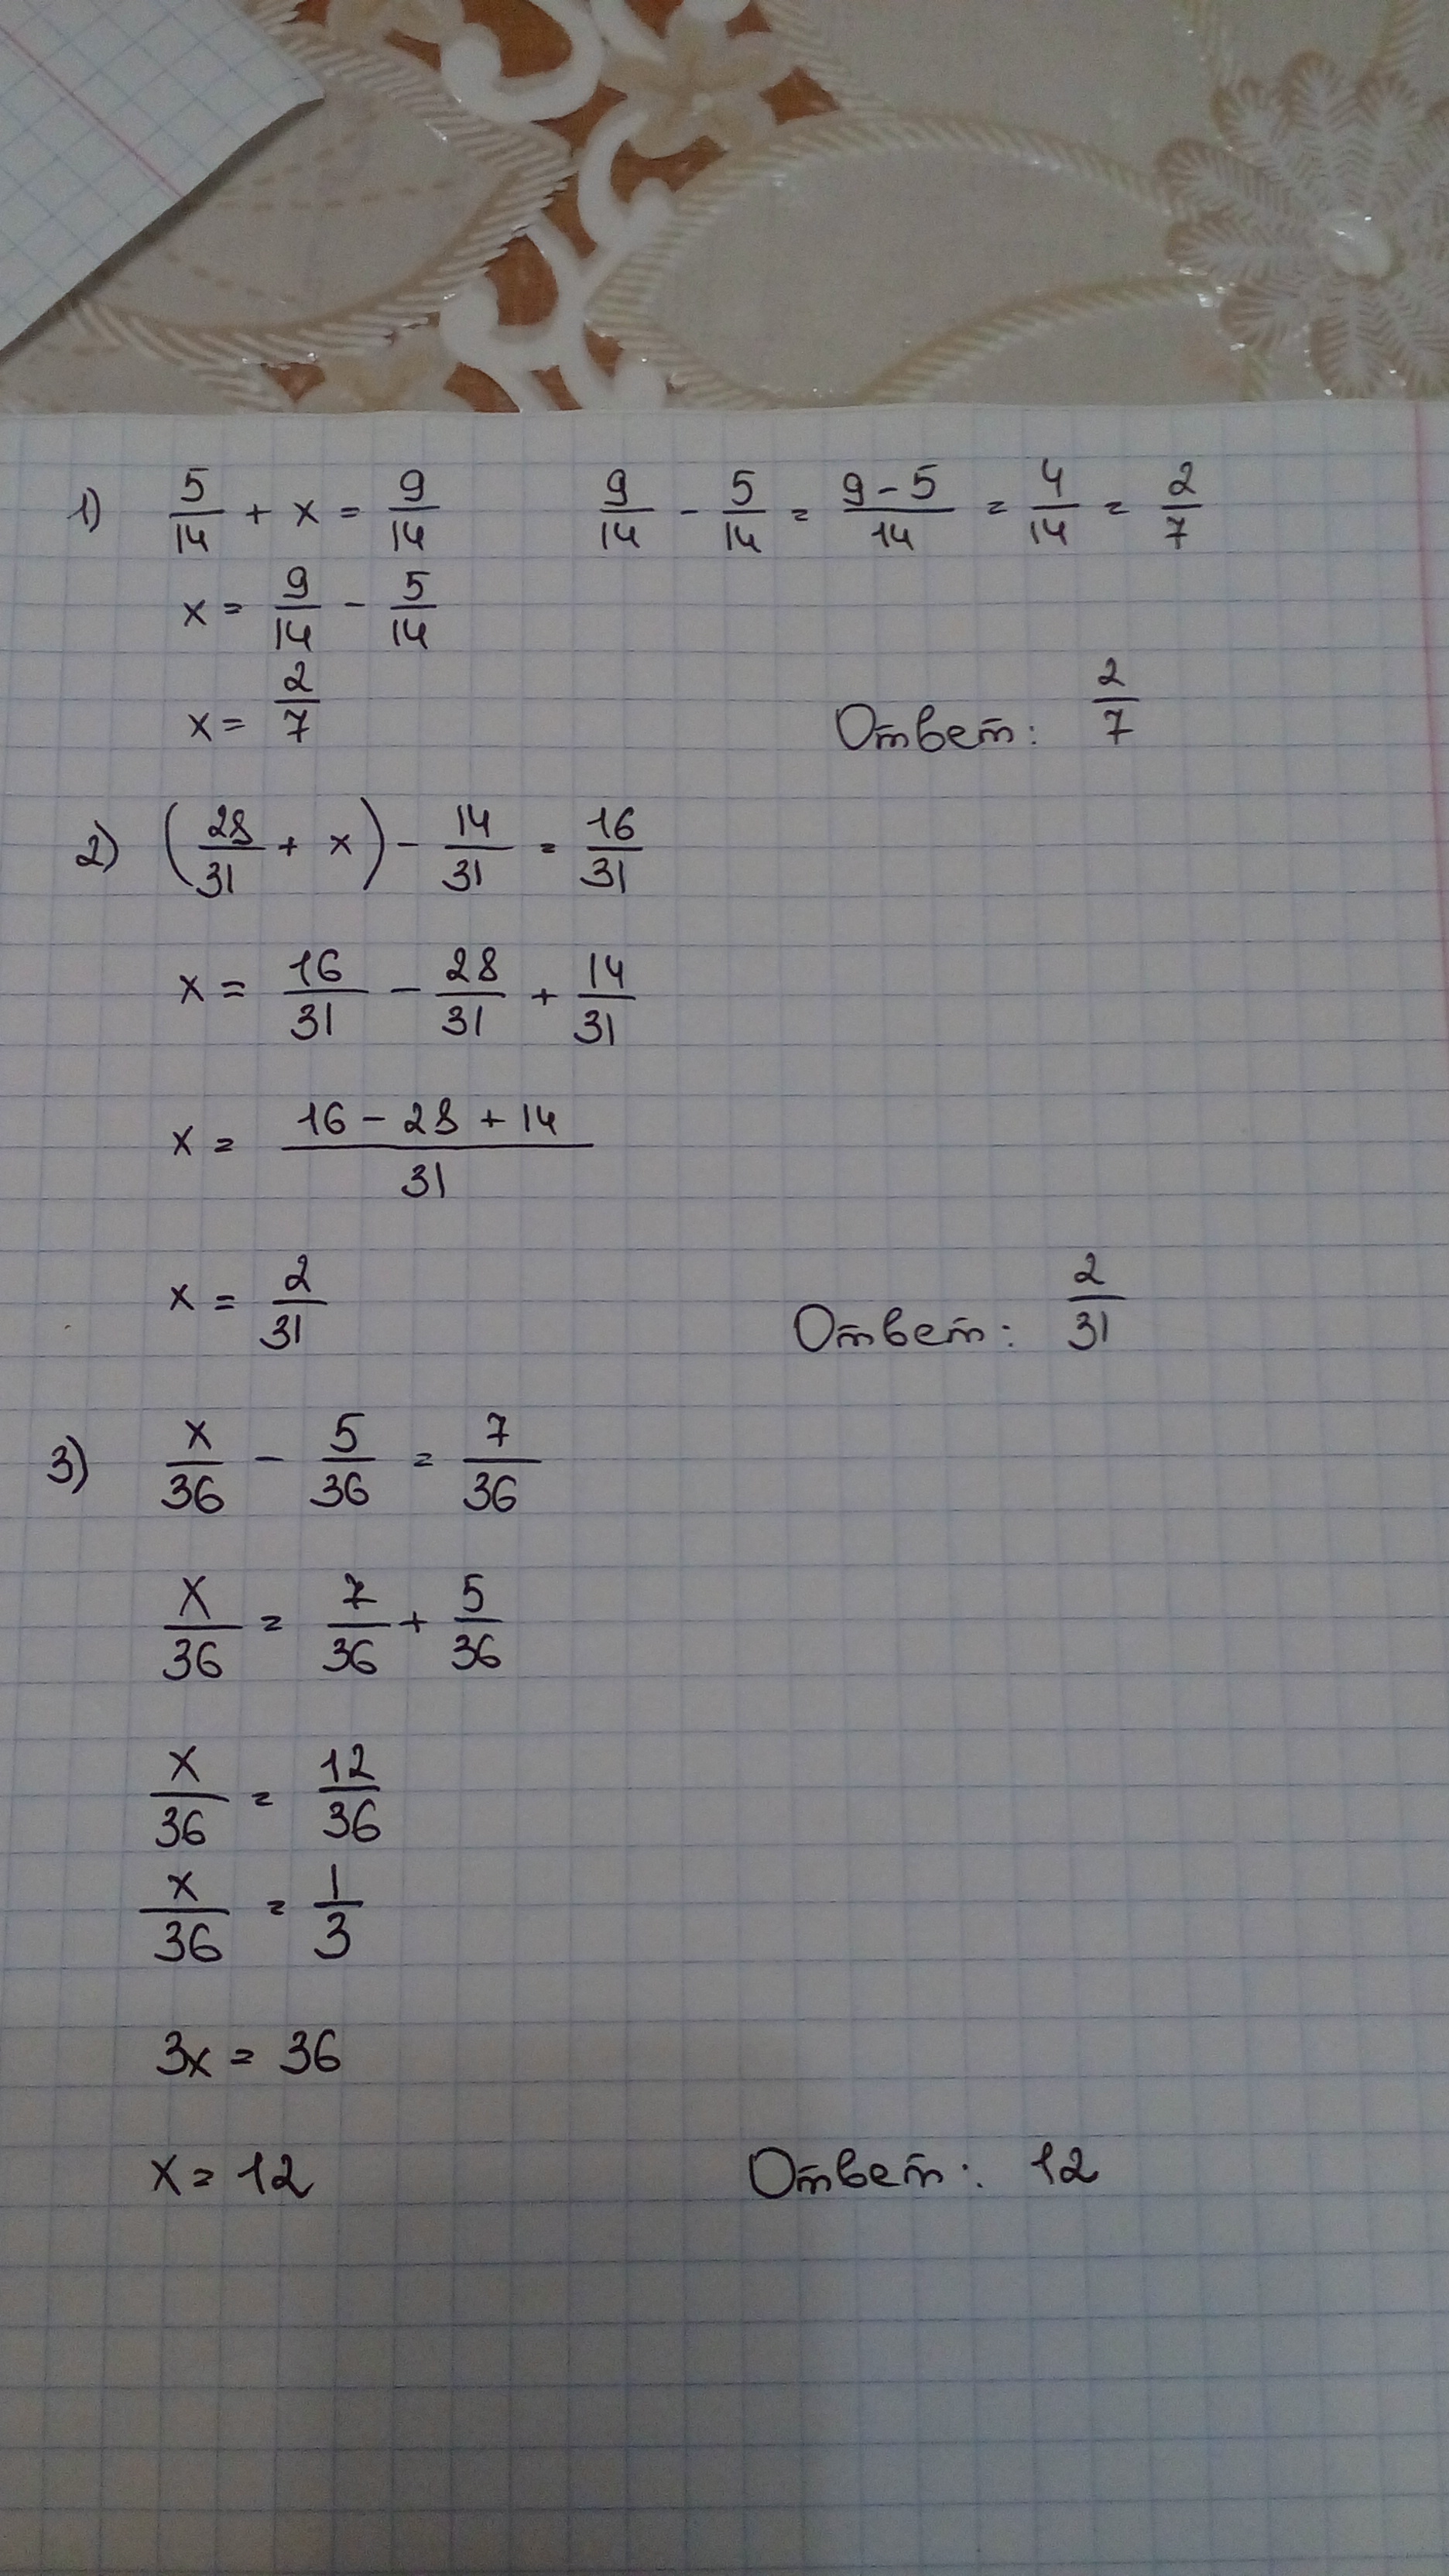 1) 5/14 + x = 9/14   9/14 - 5/14 = (9-5)/14 = 4/14 = 2/7
x = 9/14 - 5/14
x = 2/7   Ответ: 2/7
2) (28/31 + x) - 14/31 = 16/31
x = 16/31 - 28/31 + 14/31
x = (16 - 28 + 14)/31
x = 2/31   Ответ: 2/31
3) x/36 - 5/36 = 7/36
x/36 = 7/36 + 5/36
x/36 = 12/36
x/36 = 1/3
3x = 36
x = 12   Ответ: 12